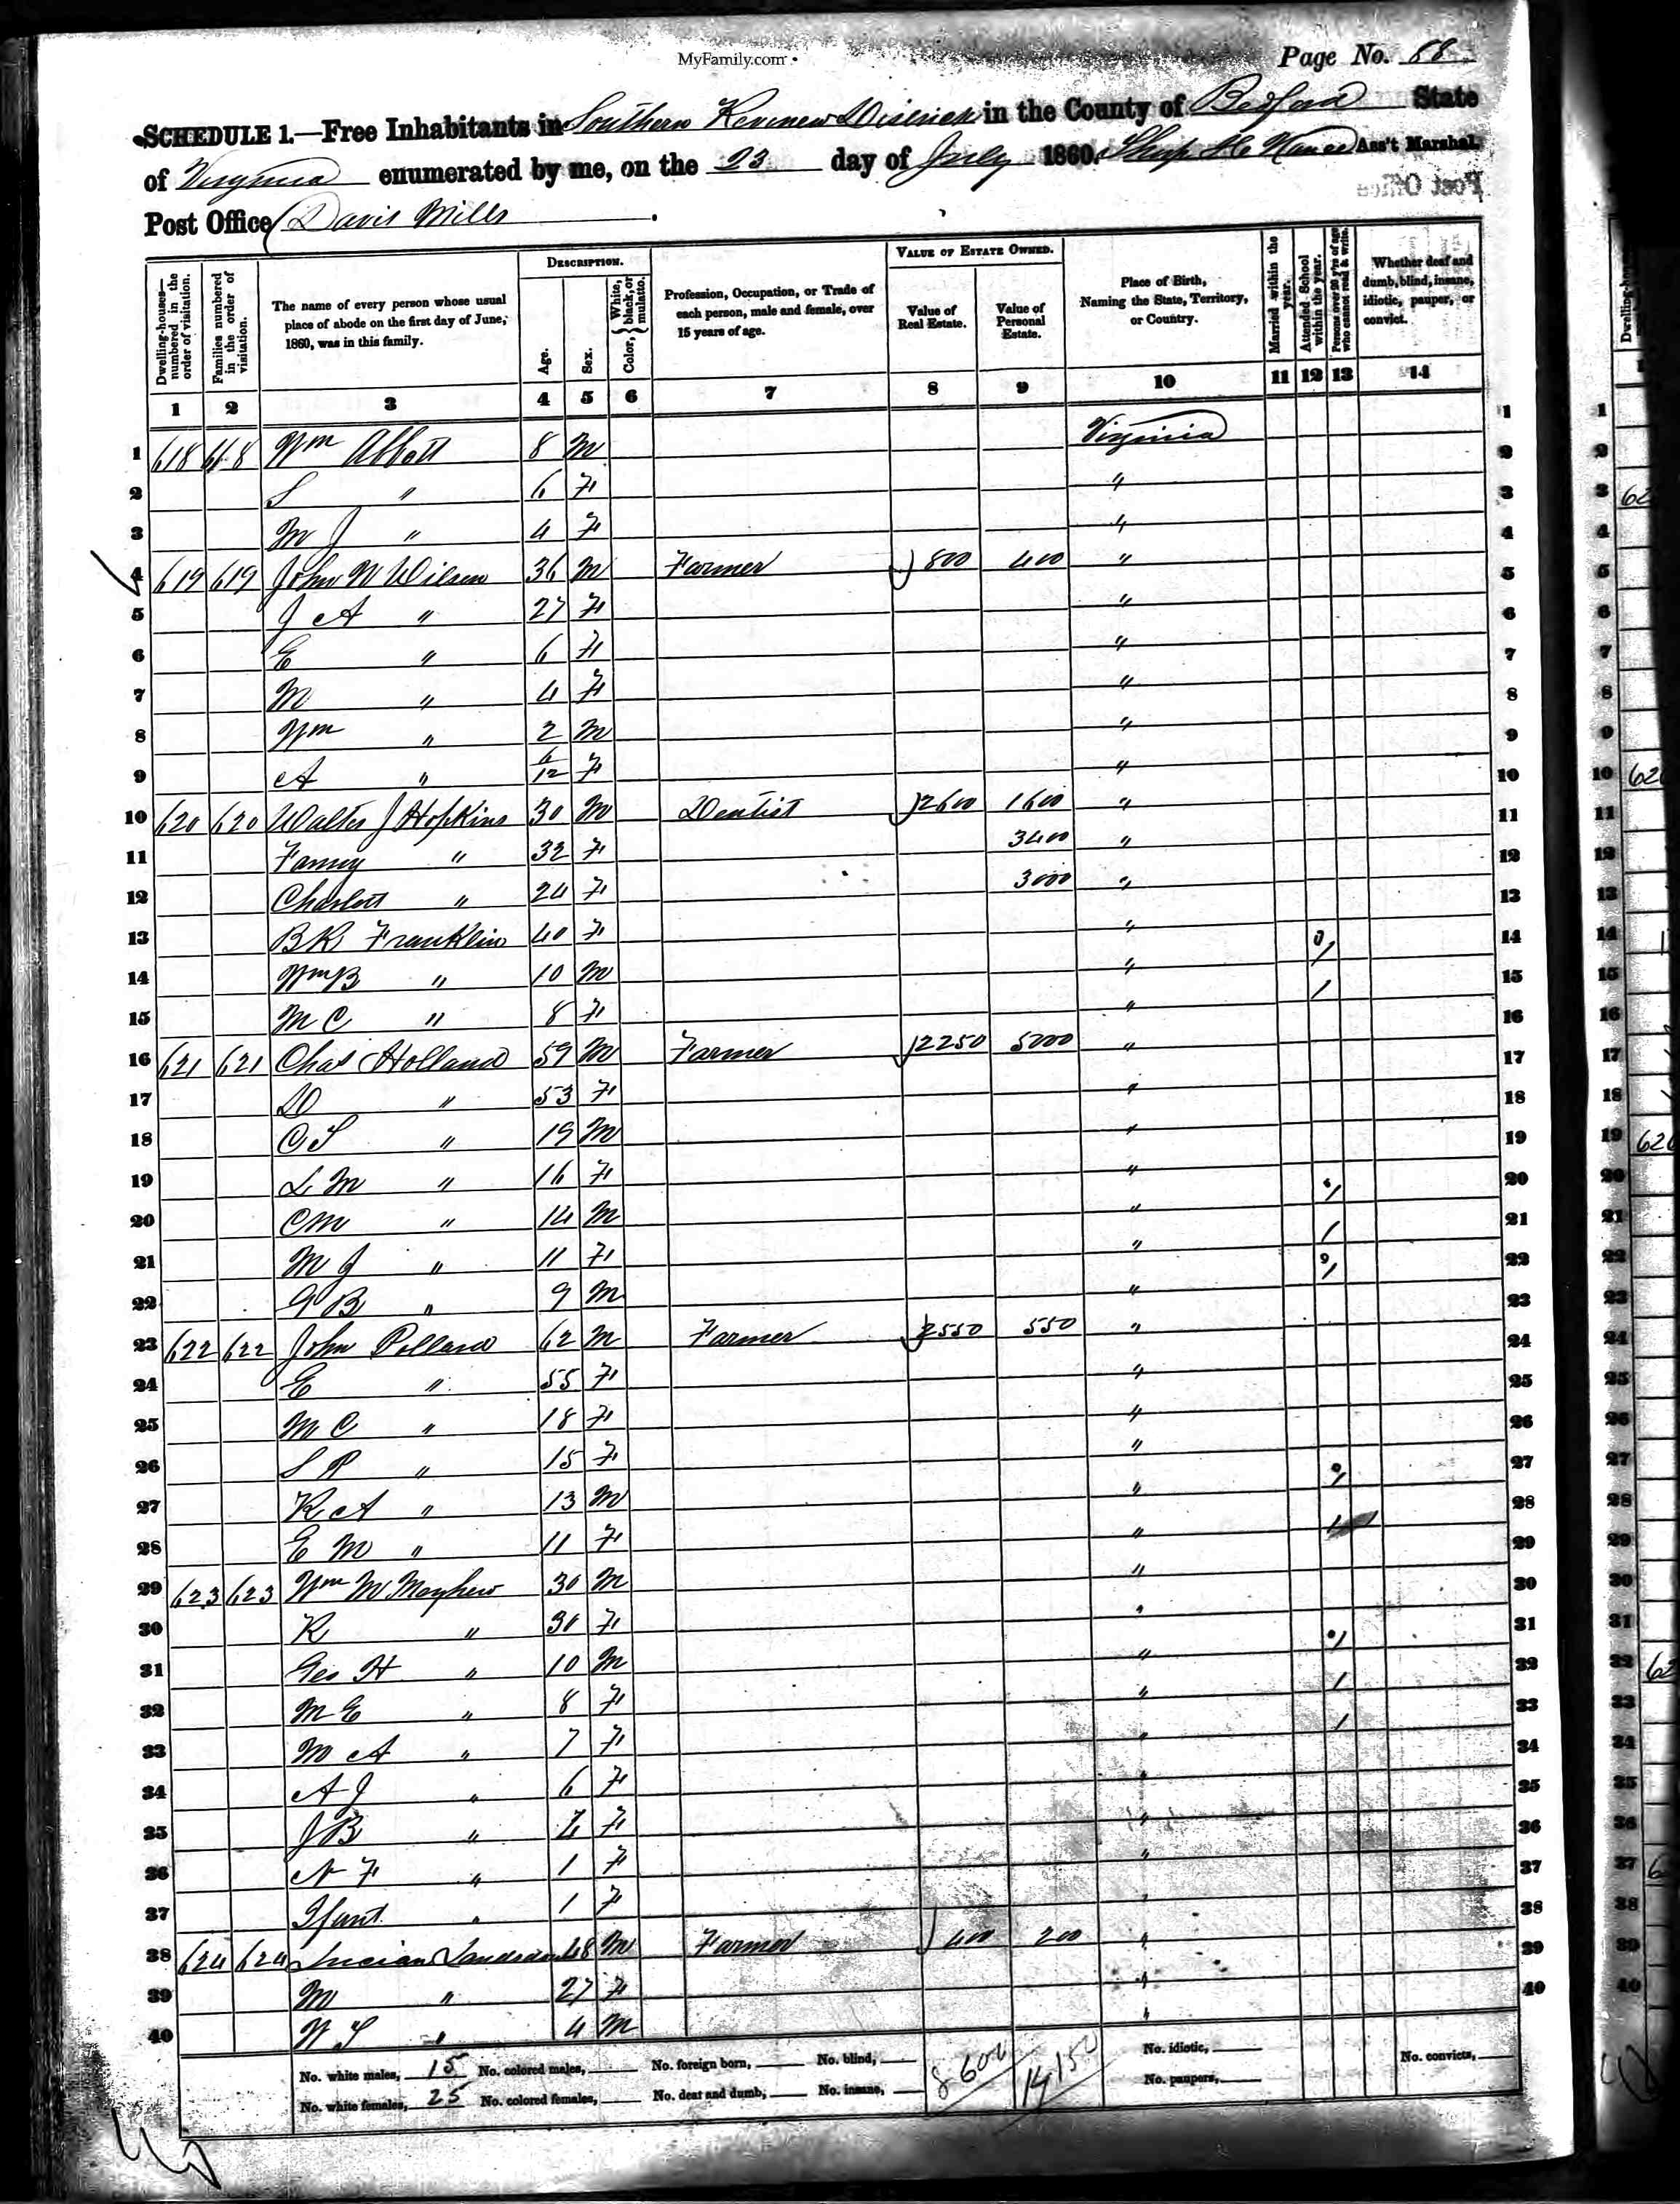 MyFamily.com
Page No. 88
SCHEDULE 1.—Free Inhabitants in Southern Revenue District in the County of Bedford State
of Virginia enumerated by me, on the 23 day of July 1860. Ass't Marshal.
Post Office Davis Mills
Post Office
Dwelling-houses—numbered in the order of visitation.
Families numbered in the order of visitation.
The name of every person whose usual place of abode on the first day of June, 1860, was in this family.
DESCRIPTION.
Age.
Sex.
Color, { White, black, or mulatto.
Profession, Occupation, or Trade of each person, male and female, over 15 years of age.
VALUE OF ESTATE OWNED.
Value of Real Estate.
Value of Personal Estate.
Place of Birth, Naming the State, Territory, or Country.
Married within the year.
Attended School within the year.
Persons over 20 y'rs of age who cannot read & write.
Whether deaf and dumb, blind, insane, idiotic, pauper, or convict.
1 2 3 4 5 6 7 8 9 10 11 12 13 14
1 618 618 Wm Abbott 8 m Virginia 1
2 S " 6 F " 2
3 M J " 4 F " 3
4 619 619 John W Wilson 36 m Farmer 800 400 " 4
5 J A " 27 F " 5
6 E " 6 F " 6
7 M " 4 F " 7
8 Wm " 2 m " 8
9 A " 6/12 F " 9
10 620 620 Walter J Hopkins 30 m Dentist 2600 1600 " 10
11 Fanny " 32 F 3400 " 11
12 Charlott " 24 F 3000 " 12
13 BR Franklin 40 F " 13
14 Wm B " 10 m " / 14
15 M C " 8 F " / 15
16 621 621 Chas Holland 59 m Farmer 2250 5000 " 16
17 " 53 F " 17
18 C S " 19 m " 18
19 L M " 16 F " 19
20 C M " 14 m " / 20
21 M J " 11 F " / 21
22 G B " 9 m " / 22
23 622 622 John Pollard 62 m Farmer 2550 550 " 23
24 E " 55 F " 24
25 M C " 18 F " 25
26 S P " 15 F " 26
27 R A " 13 m " / 27
28 E M " 11 F " / 28
29 623 623 Wm M Mayhew 30 m " 29
30 R " 30 F " 30
31 Geo H " 10 m " / 31
32 M E " 8 F " / 32
33 M A " 7 F " / 33
34 A J " 6 F " 34
35 J B " F " 35
36 N F " 1 F " 36
37 Ifant " 1 F " 37
38 624 624 Lucian 48 m Farmer 400 200 " 38
39 M " 27 F " 39
40 W S " 4 m " 40
No. white males, 15 No. colored males, No. foreign born, No. blind, 8600 14150 No. idiotic, No. convicts,
No. white females, 25 No. colored females, No. deaf and dumb, No. insane, No. paupers,